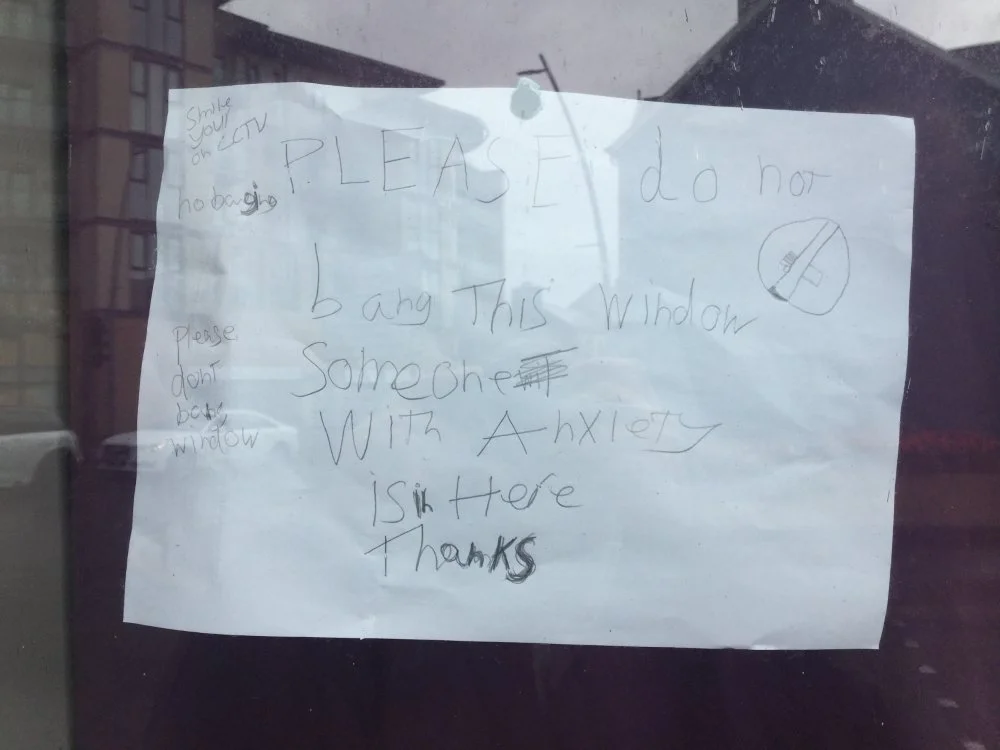 Smile
your
on CCTV
no banging
PLEASE do not
bang This window
Someone
With Anxiety
is in Here
Thanks
please
dont
bang
window